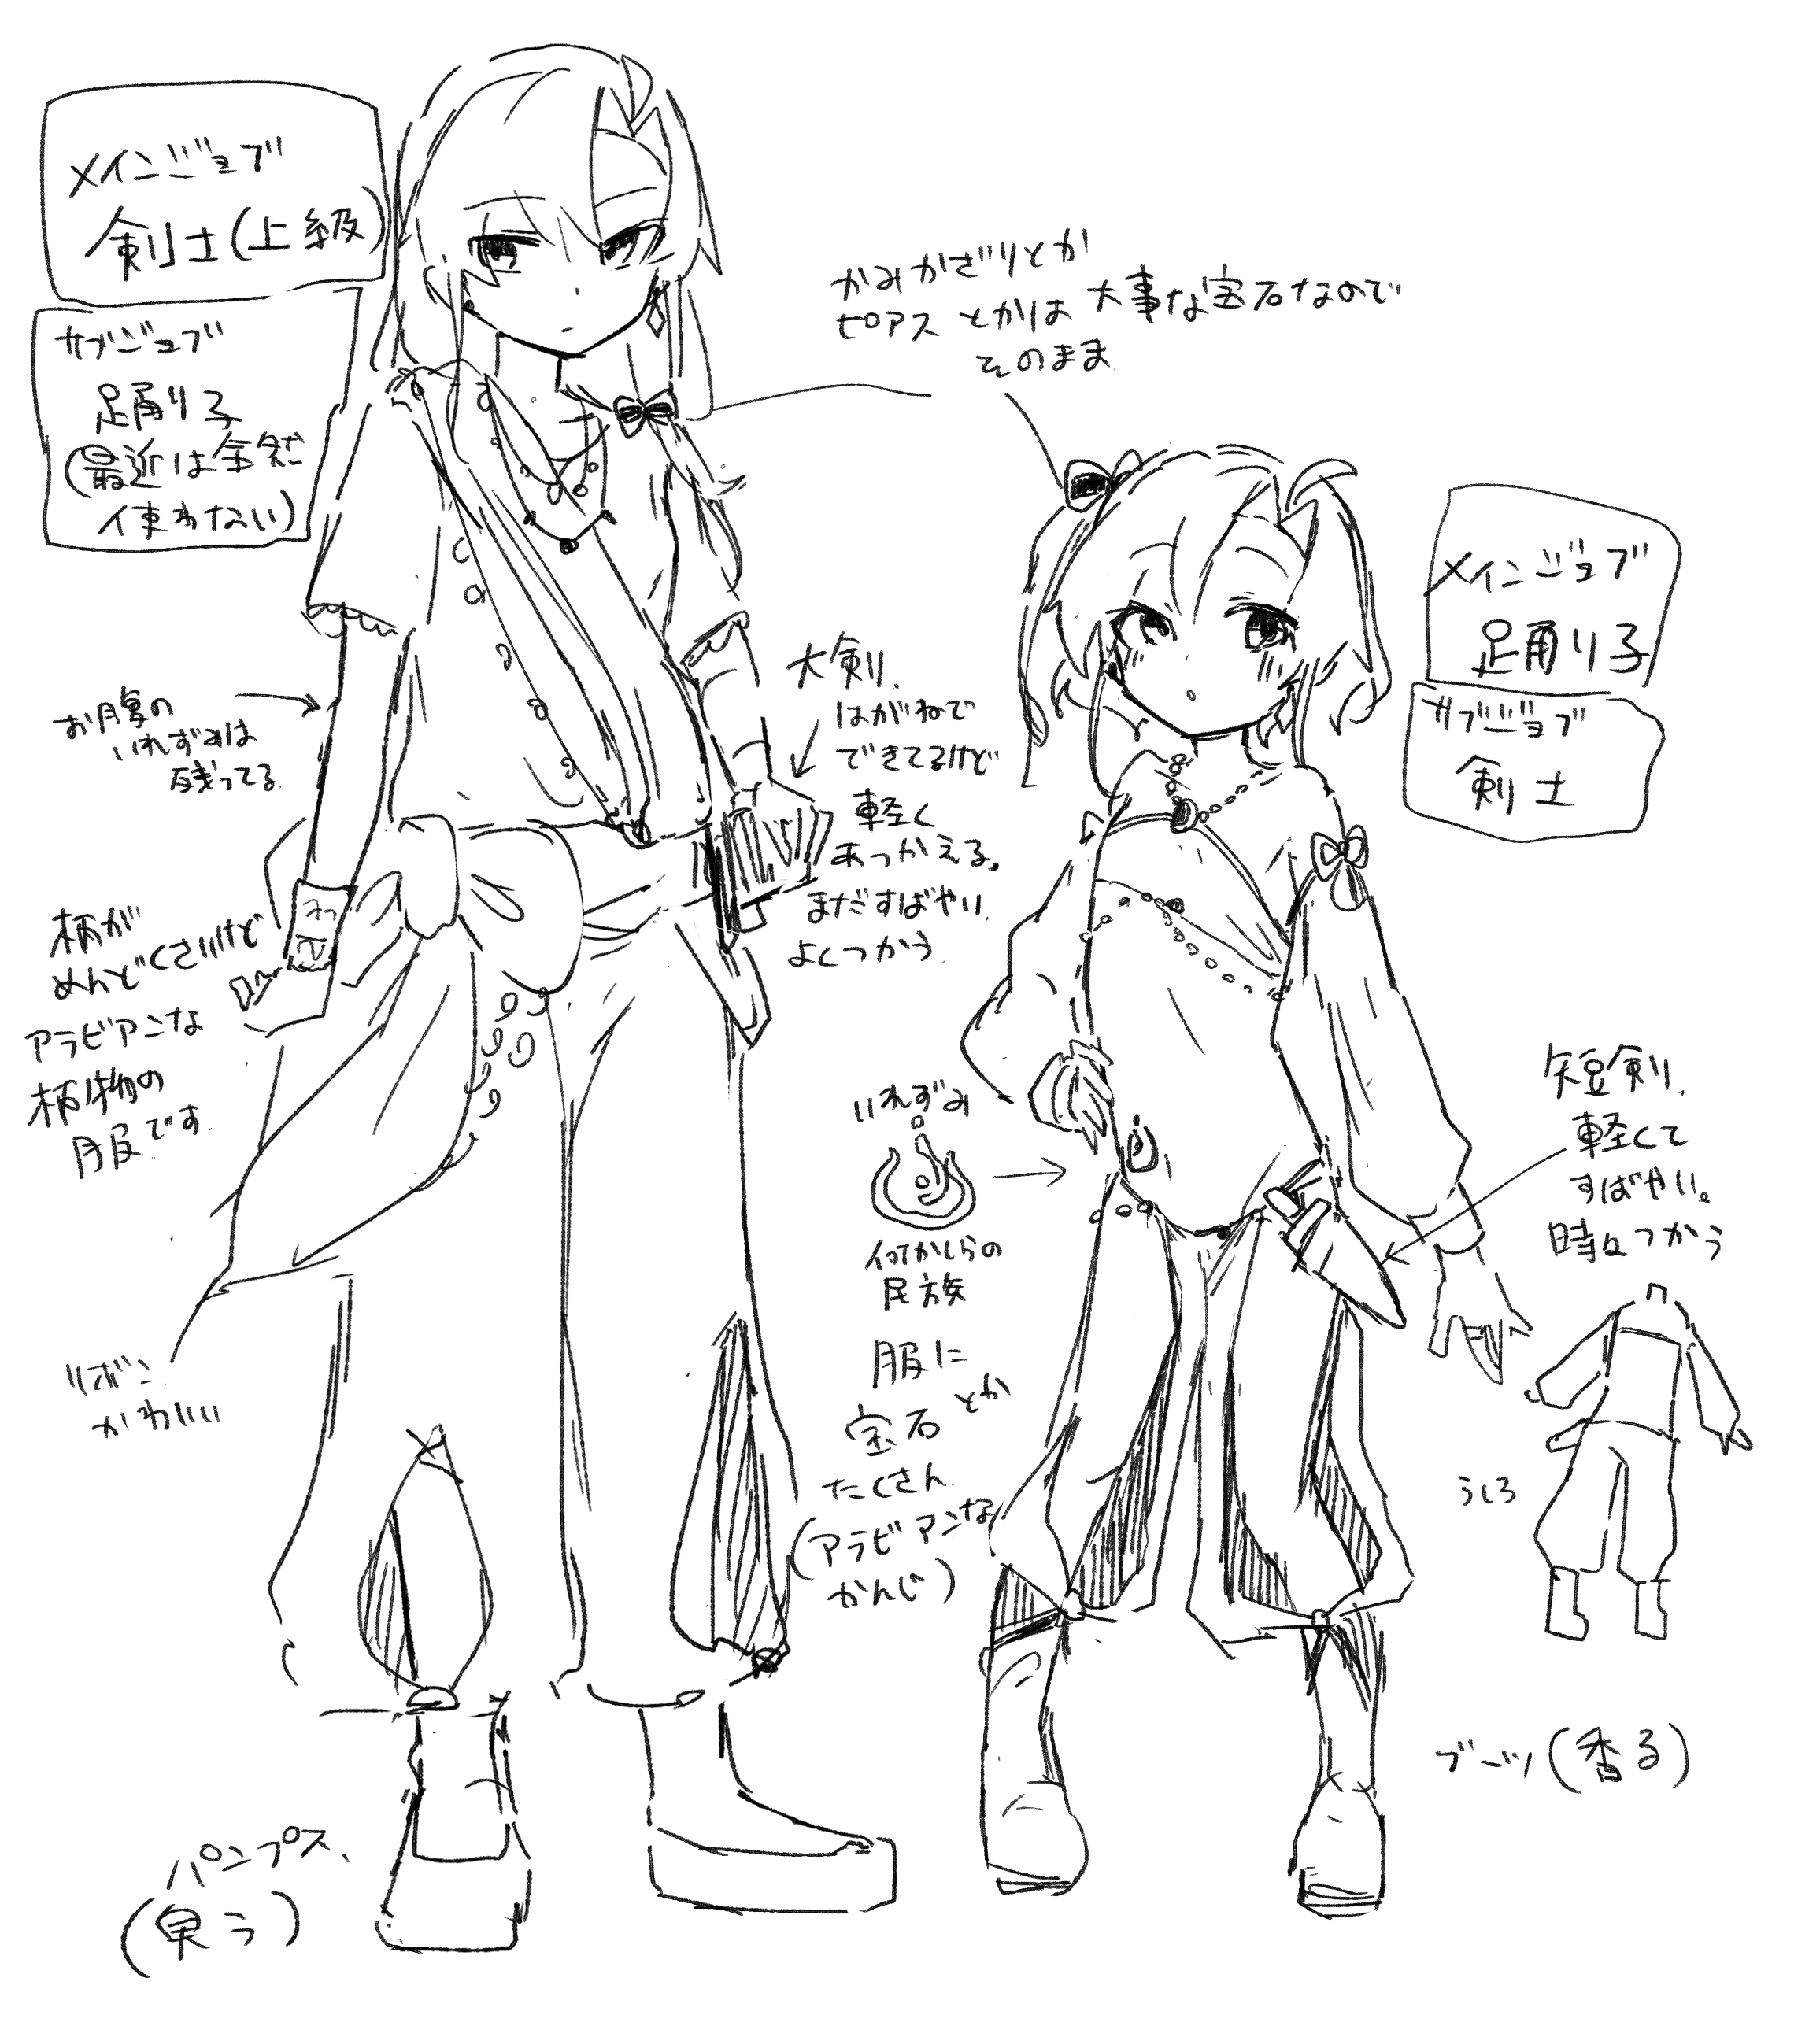 メインジョブ
剣士(上級)
サブジョブ
踊り子
(最近は全然
使わない)
かみかざりとか
ピアスとかは大事な宝石なので
そのまま
メインジョブ
踊り子
サブジョブ
剣士
お腹の
いれずみは
残ってる
大剣.
はがねで
できてるけど
軽く
あつかえる。
まだすばやい.
よくつかう
柄が
めんどくさいけど
アラビアンな
柄物の
服です.
いれずみ
何かしらの
民族
短剣.
軽くて
すばやい。
時々つかう
リボン
かわいい
服に
宝石とか
たくさん
(アラビアンな
かんじ)
うしろ
ブーツ(香る)
パンプス.
(臭う)